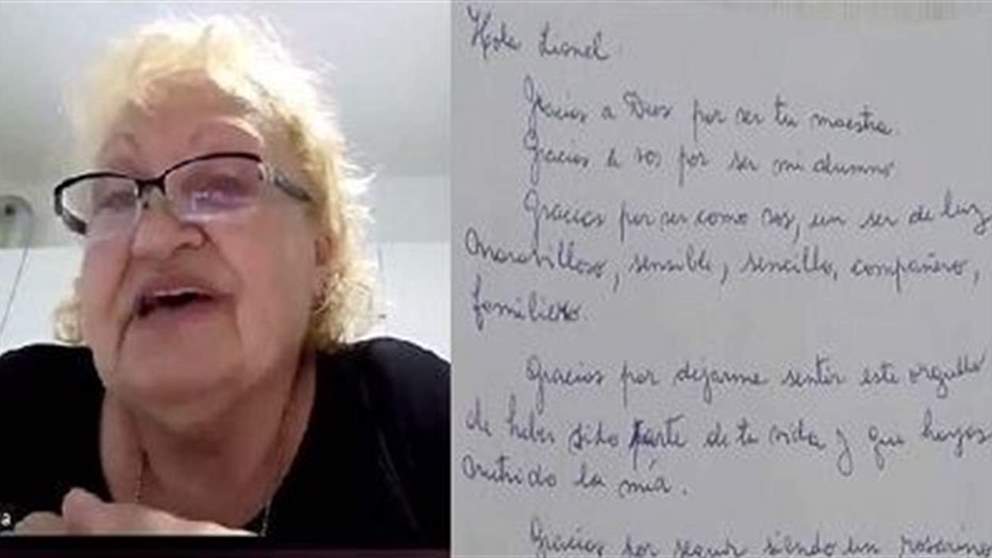 Hola Lionel
Gracias a Dios por ser tu maestra.
Gracias a vos por ser mi alumno
Gracias por ser como vos, un ser de luz
maravilloso, sensible, sencillo, compañero,
familiero.
Gracias por dejarme sentir este orgullo
de haber sido parte de tu vida y que hayas
nutrido la mía.
Gracias por seguir siendo un
a